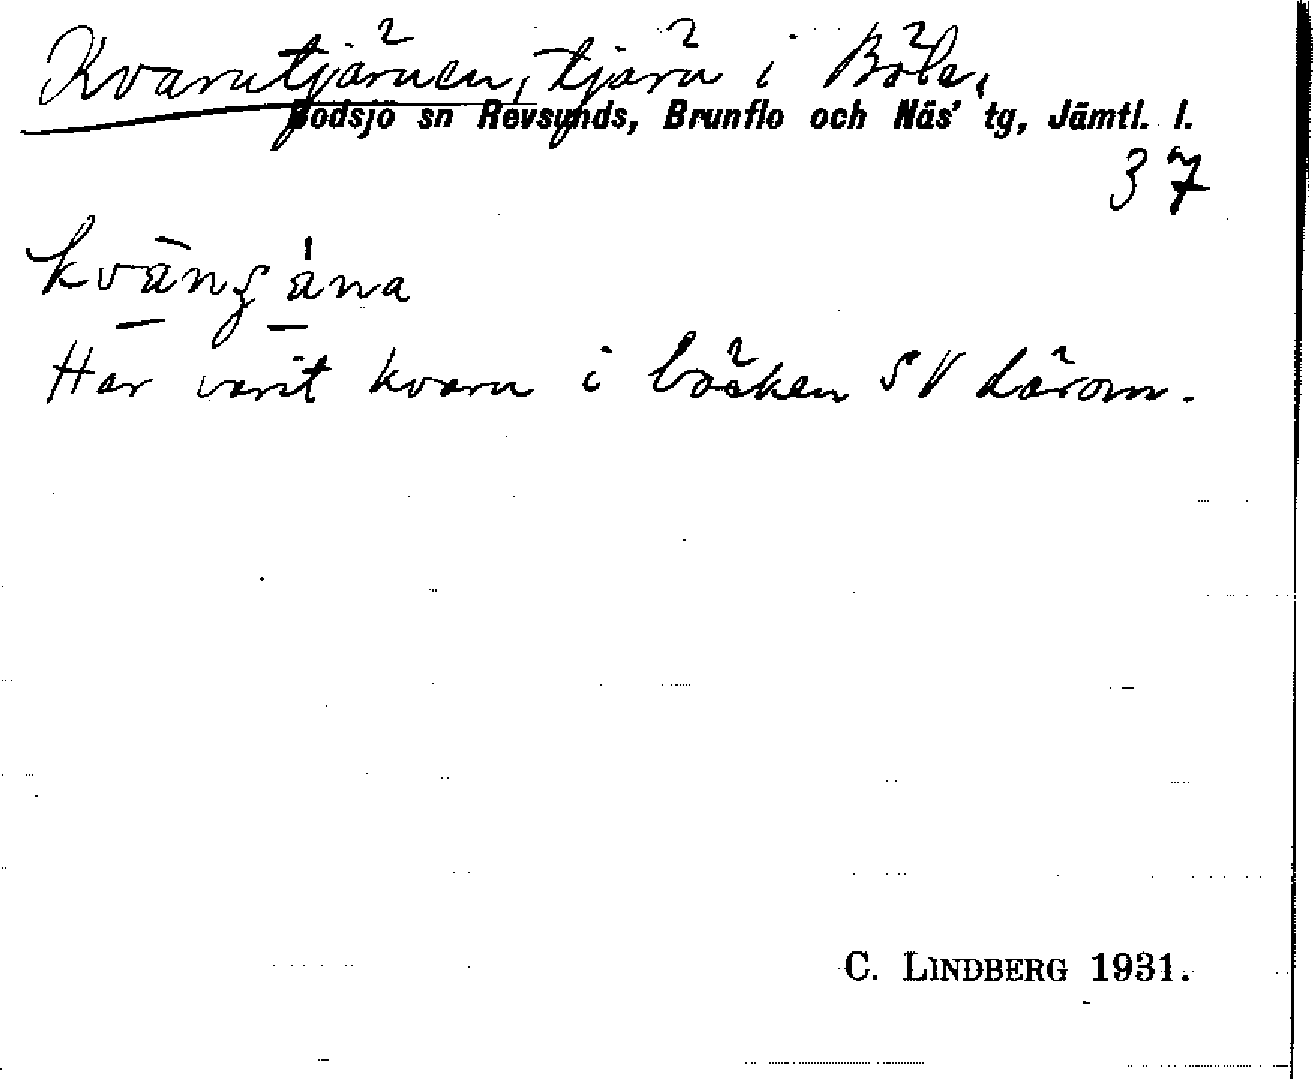 Kvarntjärnen, tjärn i Böle,
Bodsjö sn Revsunds, Brunflo och Näs' tg, Jämtl. l.
37
Har varit kvarn i bäcken SV därom.
C. LINDBERG 1931.